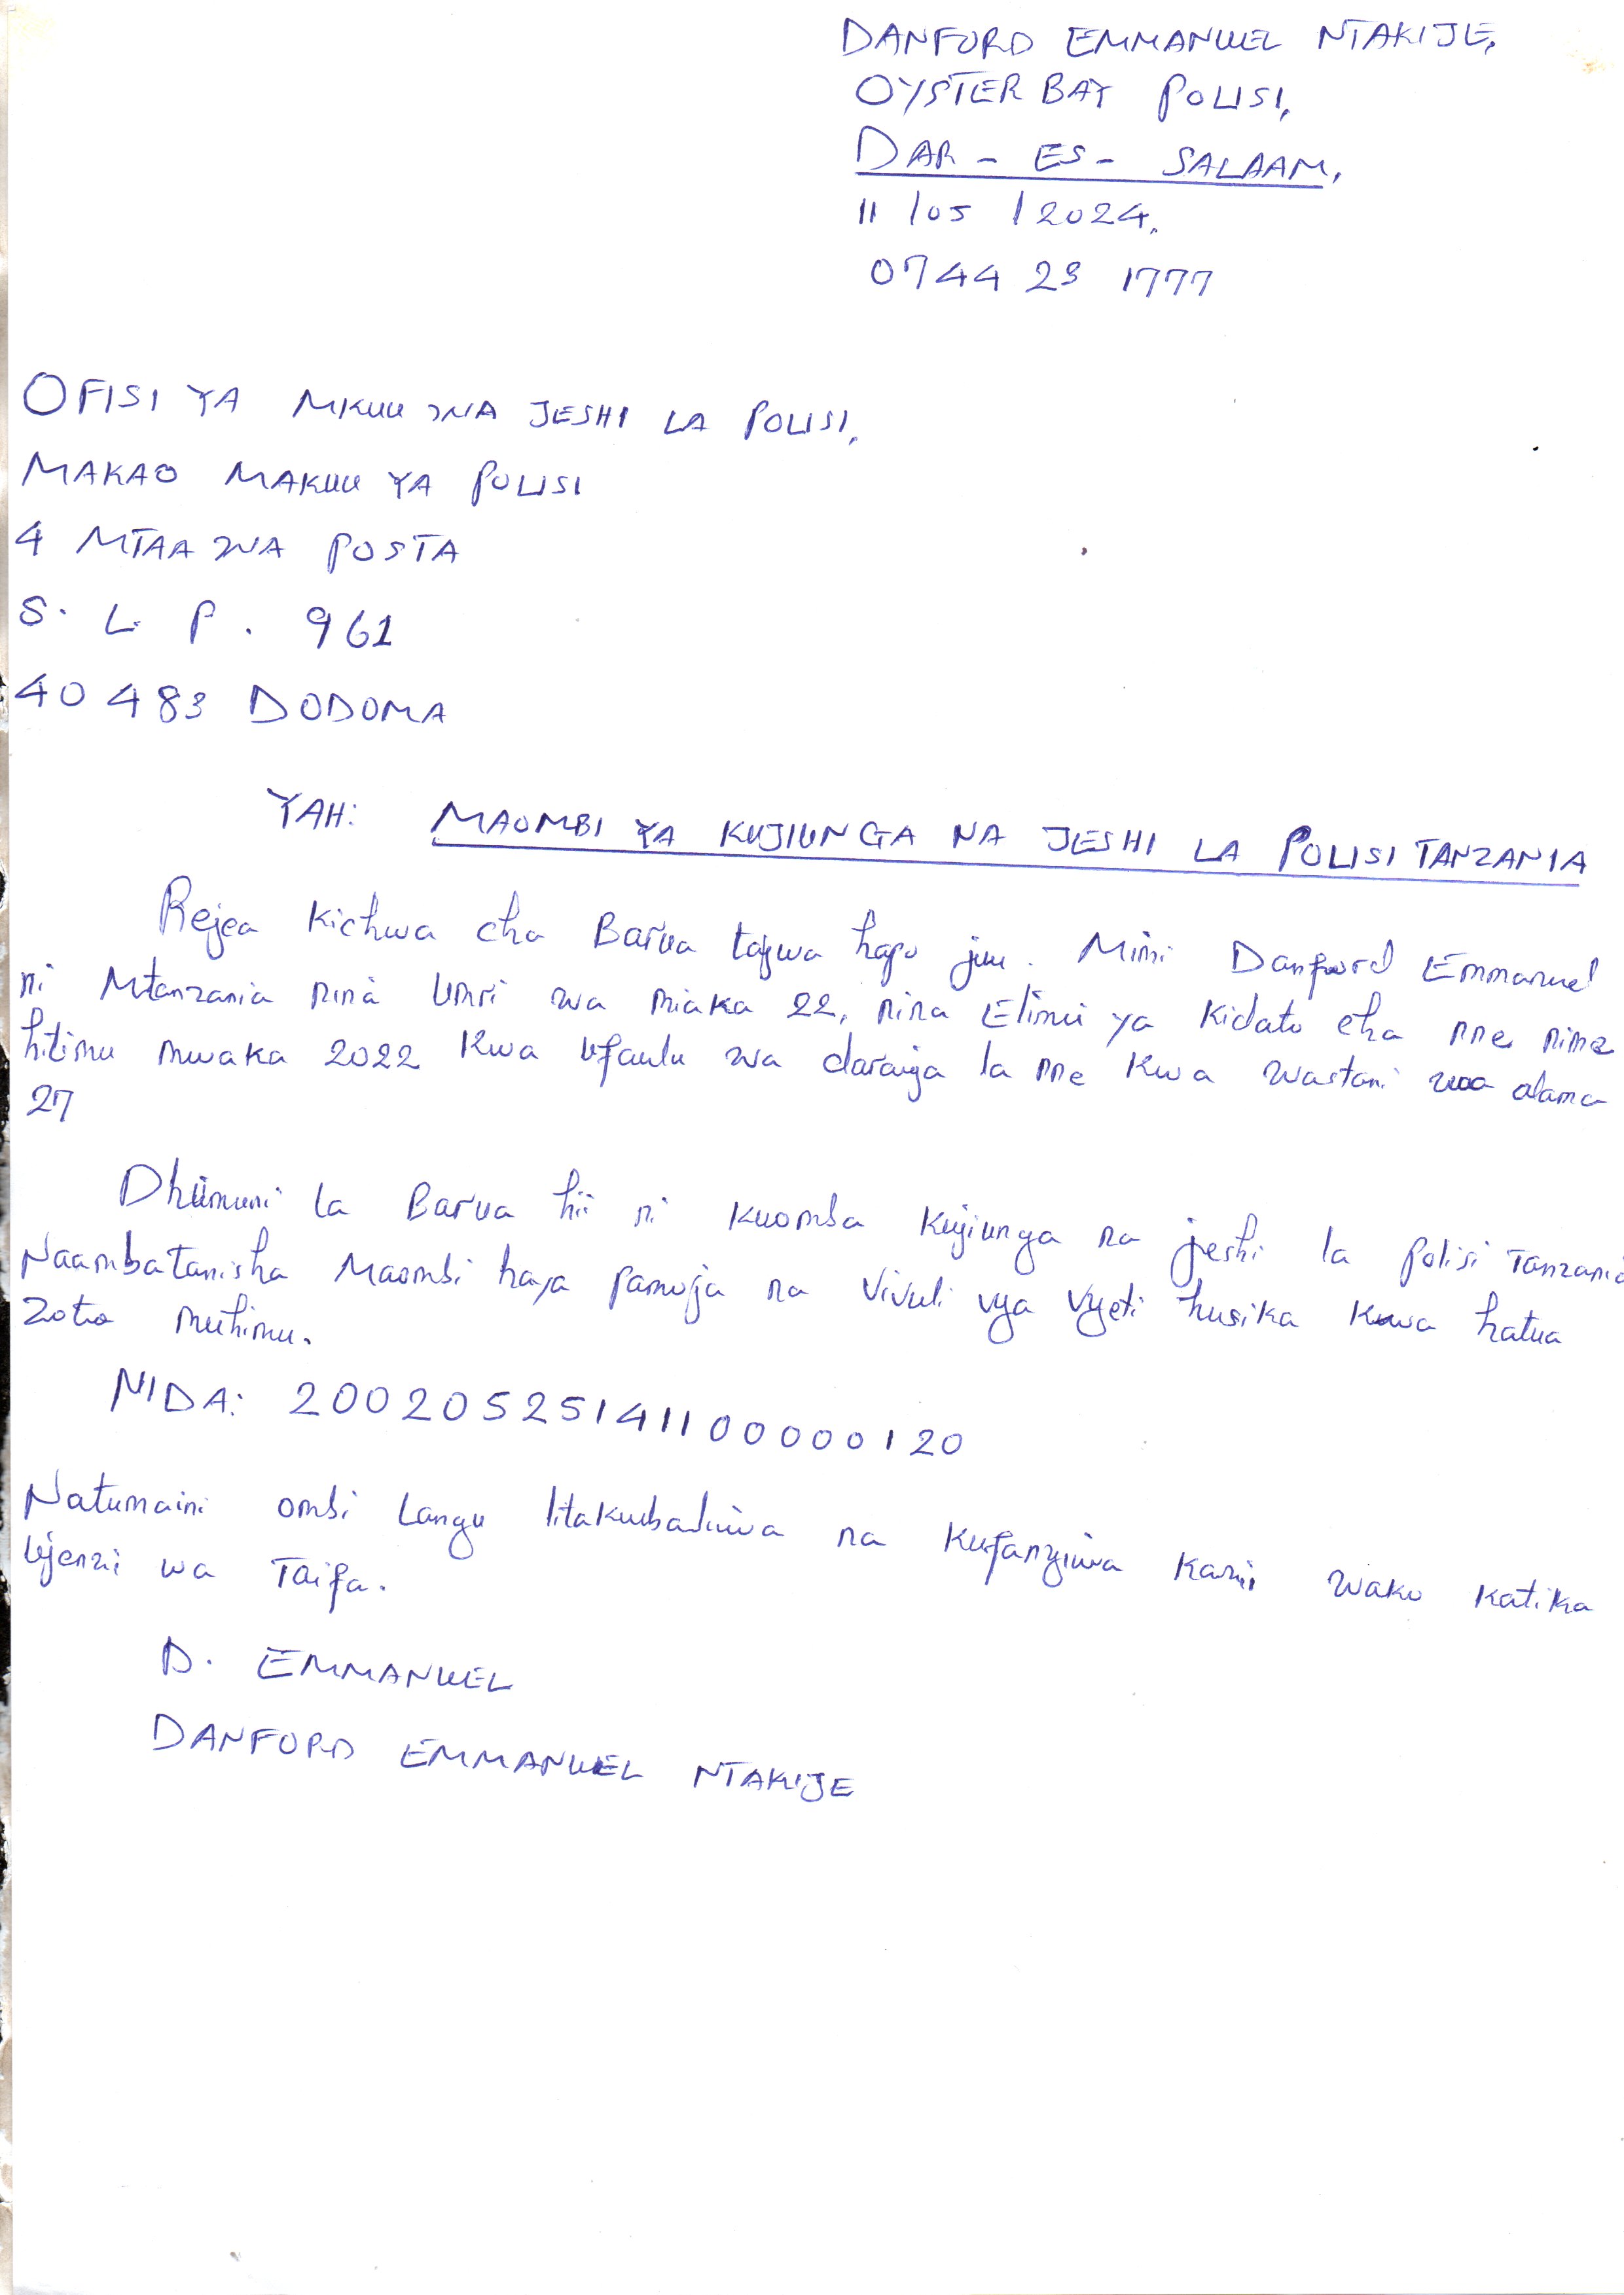 DANFORD EMMANUEL NTAKIJE,
OYSTER BAY POLISI,
DAR - ES - SALAAM,
11 /05 /2024,
0744 23 1777
OFISI YA MKUU WA JESHI LA POLISI,
MAKAO MAKUU YA POLISI
4 MTAA WA POSTA
S. L. P. 961
40 483 DODOMA
YAH: MAOMBI YA KUJIUNGA NA JESHI LA POLISI TANZANIA
Rejea Kichwa cha Barua tajwa hapo juu. Mimi Danford Emmanuel
ni Mtanzania nina Umri wa miaka 22, nina Elimu ya Kidato cha nne nime
hitimu mwaka 2022 Kwa Ufaulu wa daraja la nne Kwa wastani waa alama
27
Dhumuni la Barua hii ni Kuomba Kujiunga na jeshi la polisi Tanzania
Naambatanisha Maombi haya pamoja na Vivuli vya Vyeti husika Kwa hatua
Zote muhimu.
NIDA: 20020525141100000120
Natumaini ombi Langu litakubaliwa na Kufanyiwa Kazi wako Katika
Ujenzi wa Taifa.
D. EMMANUEL
DANFORD EMMANUEL NTAKIJE